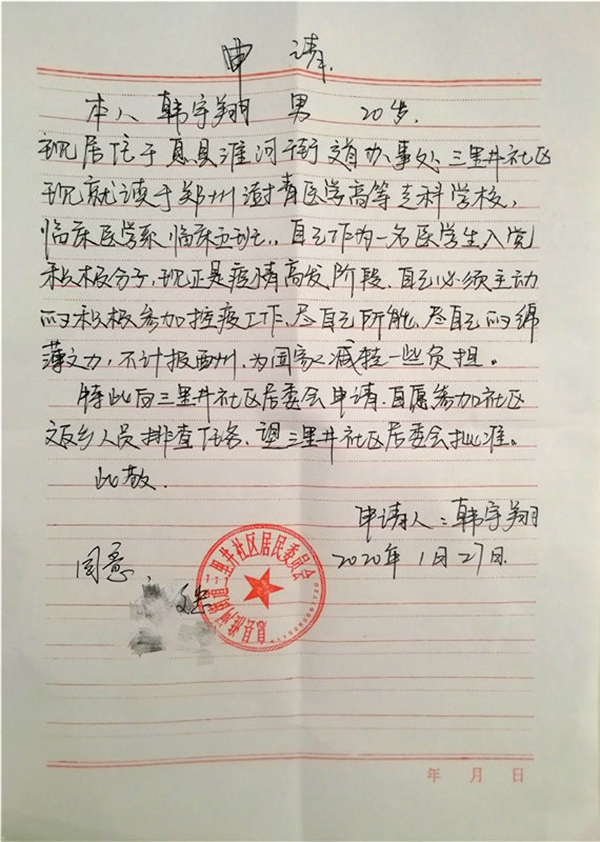 申请
本人 韩宇翔 男 20岁.
现居住于息县淮河街道办事处三里井社区
现就读于郑州澍青医学高等专科学校,
临床医学系临床五班.,自己作为一名医学生入党
积极分子,现正是疫情高发阶段.自己必须主动
的积极参加控疫工作、尽自己所能、尽自己的绵
薄之力,不计报酬、为国家减轻一些负担。
特此向三里井社区居委会申请.自愿参加社区
返乡人员排查任务、望三里井社区居委会批准。
此敬.
申请人:韩宇翔
2020年1月27日.
同意,
息县淮河街道三里井社区居民委员会
年 月 日